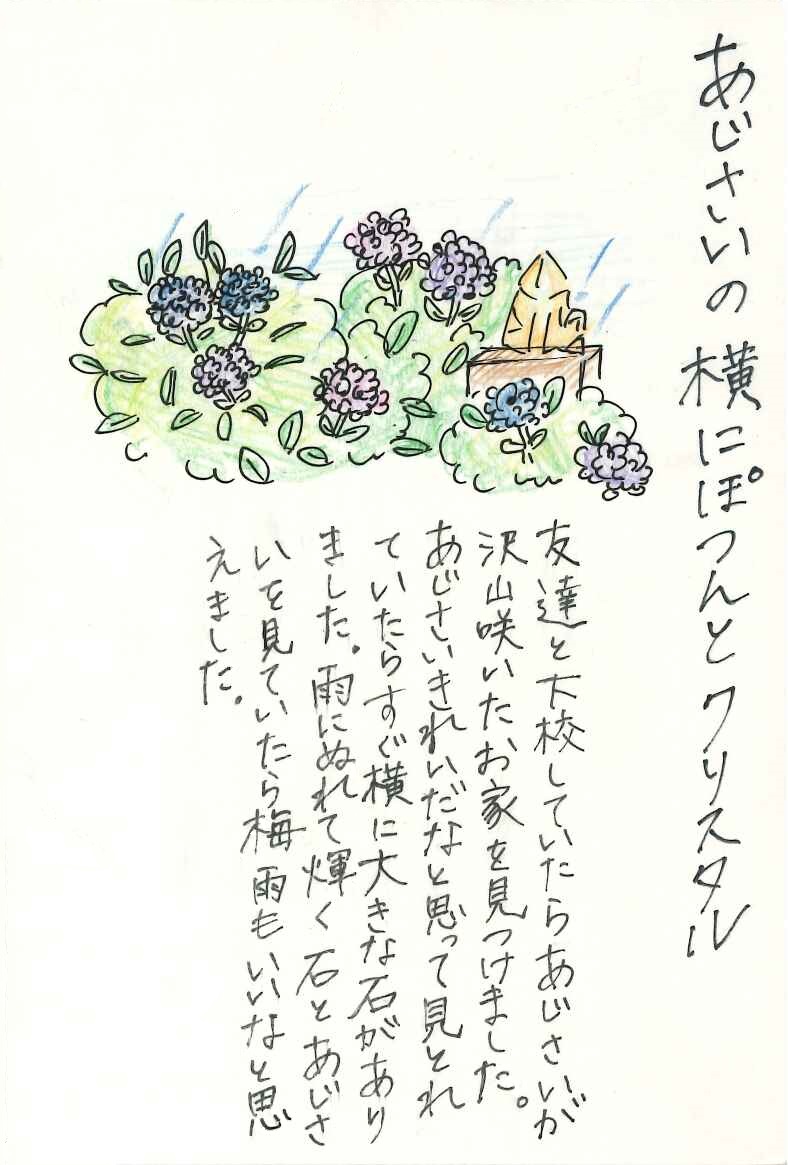 あじさいの横にぽつんとクリスタル
友達と下校していたらあじさいが
沢山咲いたお家を見つけました。
あじさいきれいだなと思って見とれ
ていたらすぐ横に大きな石があり
ました。雨にぬれて輝く石とあじさ
いを見ていたら梅雨もいいなと思
えました。